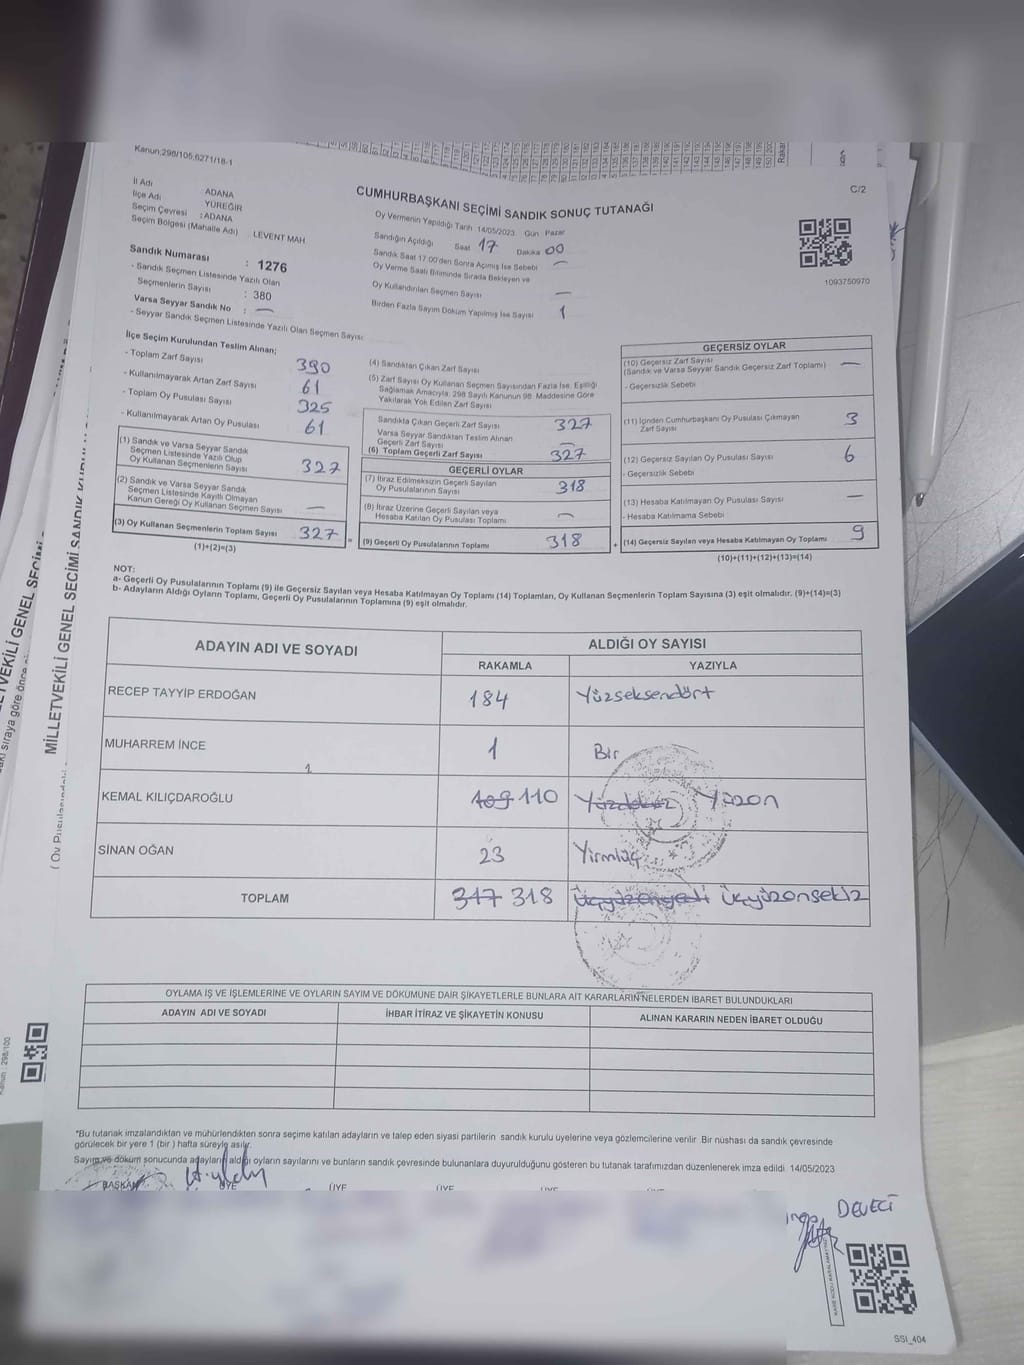 Kanun:298/105,6271/18-1
C/2
CUMHURBAŞKANI SEÇİMİ SANDIK SONUÇ TUTANAĞI
İl Adı ADANA
İlçe Adı YÜREĞİR
Seçim Çevresi :ADANA
Seçim Bölgesi (Mahalle Adı) LEVENT MAH
Sandık Numarası : 1276
- Sandık Seçmen Listesinde Yazılı Olan
Seçmenlerin Sayısı : 380
Varsa Seyyar Sandık No : —
- Seyyar Sandık Seçmen Listesinde Yazılı Olan Seçmen Sayısı:
Oy Vermenin Yapıldığı Tarih 14/05/2023 Gün Pazar
Sandığın Açıldığı Saat 17 Dakika 00
Sandık Saat 17.00'den Sonra Açımış İse Sebebi —
Oy Verme Saati Bitiminde Sırada Bekleyen ve
Oy Kullandırılan Seçmen Sayısı —
Birden Fazla Sayım Döküm Yapılmış İse Sayısı 1
1093750970
İlçe Seçim Kurulundan Teslim Alınan;
- Toplam Zarf Sayısı 390
- Kullanılmayarak Artan Zarf Sayısı 61
- Toplam Oy Pusulası Sayısı 325
- Kullanılmayarak Artan Oy Pusulası 61
(1) Sandık ve Varsa Seyyar Sandık
Seçmen Listesinde Yazılı Olup
Oy Kullanan Seçmenlerin Sayısı 327
(2) Sandık ve Varsa Seyyar Sandık
Seçmen Listesinde Kayıtlı Olmayan
Kanun Gereği Oy Kullanan Seçmen Sayısı —
(3) Oy Kullanan Seçmenlerin Toplam Sayısı 327
(1)+(2)=(3)
(4) Sandıktan Çıkan Zarf Sayısı
(5) Zarf Sayısı Oy Kullanan Seçmen Sayısından Fazla İse, Eşitliği
Sağlamak Amacıyla, 298 Sayılı Kanunun 98. Maddesine Göre
Yakılarak Yok Edilen Zarf Sayısı
Sandıkta Çıkan Geçerli Zarf Sayısı 327
Varsa Seyyar Sandıktan Teslim Alınan
Geçerli Zarf Sayısı —
(6) Toplam Geçerli Zarf Sayısı 327
GEÇERLİ OYLAR
(7) İtiraz Edilmeksizin Geçerli Sayılan
Oy Pusulalarının Sayısı 318
(8) İtiraz Üzerine Geçerli Sayılan veya
Hesaba Katılan Oy Pusulası Toplamı —
(9) Geçerli Oy Pusulalarının Toplamı 318
GEÇERSİZ OYLAR
(10) Geçersiz Zarf Sayısı
(Sandık ve Varsa Seyyar Sandık Geçersiz Zarf Toplamı) —
- Geçersizlik Sebebi
(11) İçinden Cumhurbaşkanı Oy Pusulası Çıkmayan
Zarf Sayısı 3
(12) Geçersiz Sayılan Oy Pusulası Sayısı 6
- Geçersizlik Sebebi
(13) Hesaba Katılmayan Oy Pusulası Sayısı —
- Hesaba Katılmama Sebebi
(14) Geçersiz Sayılan veya Hesaba Katılmayan Oy Toplamı 9
(10)+(11)+(12)+(13)=(14)
NOT:
a- Geçerli Oy Pusulalarının Toplamı (9) ile Geçersiz Sayılan veya Hesaba Katılmayan Oy Toplamı (14) Toplamları, Oy Kullanan Seçmenlerin Toplam Sayısına (3) eşit olmalıdır. (9)+(14)=(3)
b- Adayların Aldığı Oyların Toplamı, Geçerli Oy Pusulalarının Toplamına (9) eşit olmalıdır.
ADAYIN ADI VE SOYADI ALDIĞI OY SAYISI
RAKAMLA YAZIYLA
RECEP TAYYİP ERDOĞAN 184 Yüzseksendört
MUHARREM İNCE 1 Bir
1
KEMAL KILIÇDAROĞLU 109 110 Yüzdokuz Yüzon
SİNAN OĞAN 23 Yirmiüç
TOPLAM 317 318 Üçyüzonyedi Üçyüzonsekiz
OYLAMA İŞ VE İŞLEMLERİNE VE OYLARIN SAYIM VE DÖKÜMÜNE DAİR ŞİKAYETLERLE BUNLARA AİT KARARLARIN NELERDEN İBARET BULUNDUKLARI
ADAYIN ADI VE SOYADI İHBAR İTİRAZ VE ŞİKAYETİN KONUSU ALINAN KARARIN NEDEN İBARET OLDUĞU
*Bu tutanak imzalandıktan ve mühürlendikten sonra seçime katılan adayların ve talep eden siyasi partilerin sandık kurulu üyelerine veya gözlemcilerine verilir. Bir nüshası da sandık çevresinde
görülecek bir yere 1 (bir ) hafta süreyle asılır.
Sayım ve döküm sonucunda adayların aldığı oyların sayılarını ve bunların sandık çevresinde bulunanlara duyurulduğunu gösteren bu tutanak tarafımızdan düzenlenerek imza edildi. 14/05/2023
BAŞKAN ÜYE ÜYE ÜYE ÜYE
DEVECİ
SSI_404
MİLLETVEKİLİ GENEL SEÇİMİ SANDIK
Kanun : 298/100